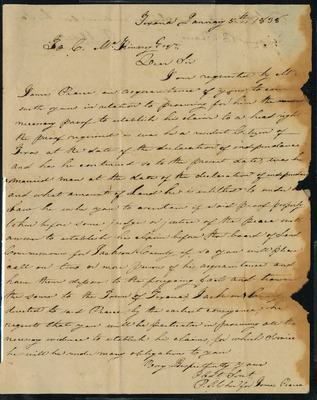 Texana January 5th, 1838
Dear Sir
I am requested by Mr
James Pearce an acquaintance of yours to com
with you in relation to procuring for him the
necessary proof to establish his claim to a head right
the proof required is was he a resident Citizen of
Texas at the date of the declaration of independence
and has he continued so to the present date, was he
married man at the date of the declaration of independence
and what amount of Land he is entitled to under
have he who you to
before some Judge or Justice of the Peace
answer to establish his claim before the board of Land
Commissioners for Jackson County, if so you will please
call on two or more persons of his acquaintance and
have them depose to the foregoing facts and
the same to the Town of Texana Jackson County
directed to said Pearce by the earliest conveyance, he
requests that you will be particular in procuring all the
necessary evidence to establish his claims, for which Service
he will be under many obligations to you
Very Respectfully yours
Obt Svnt
for James Pearce